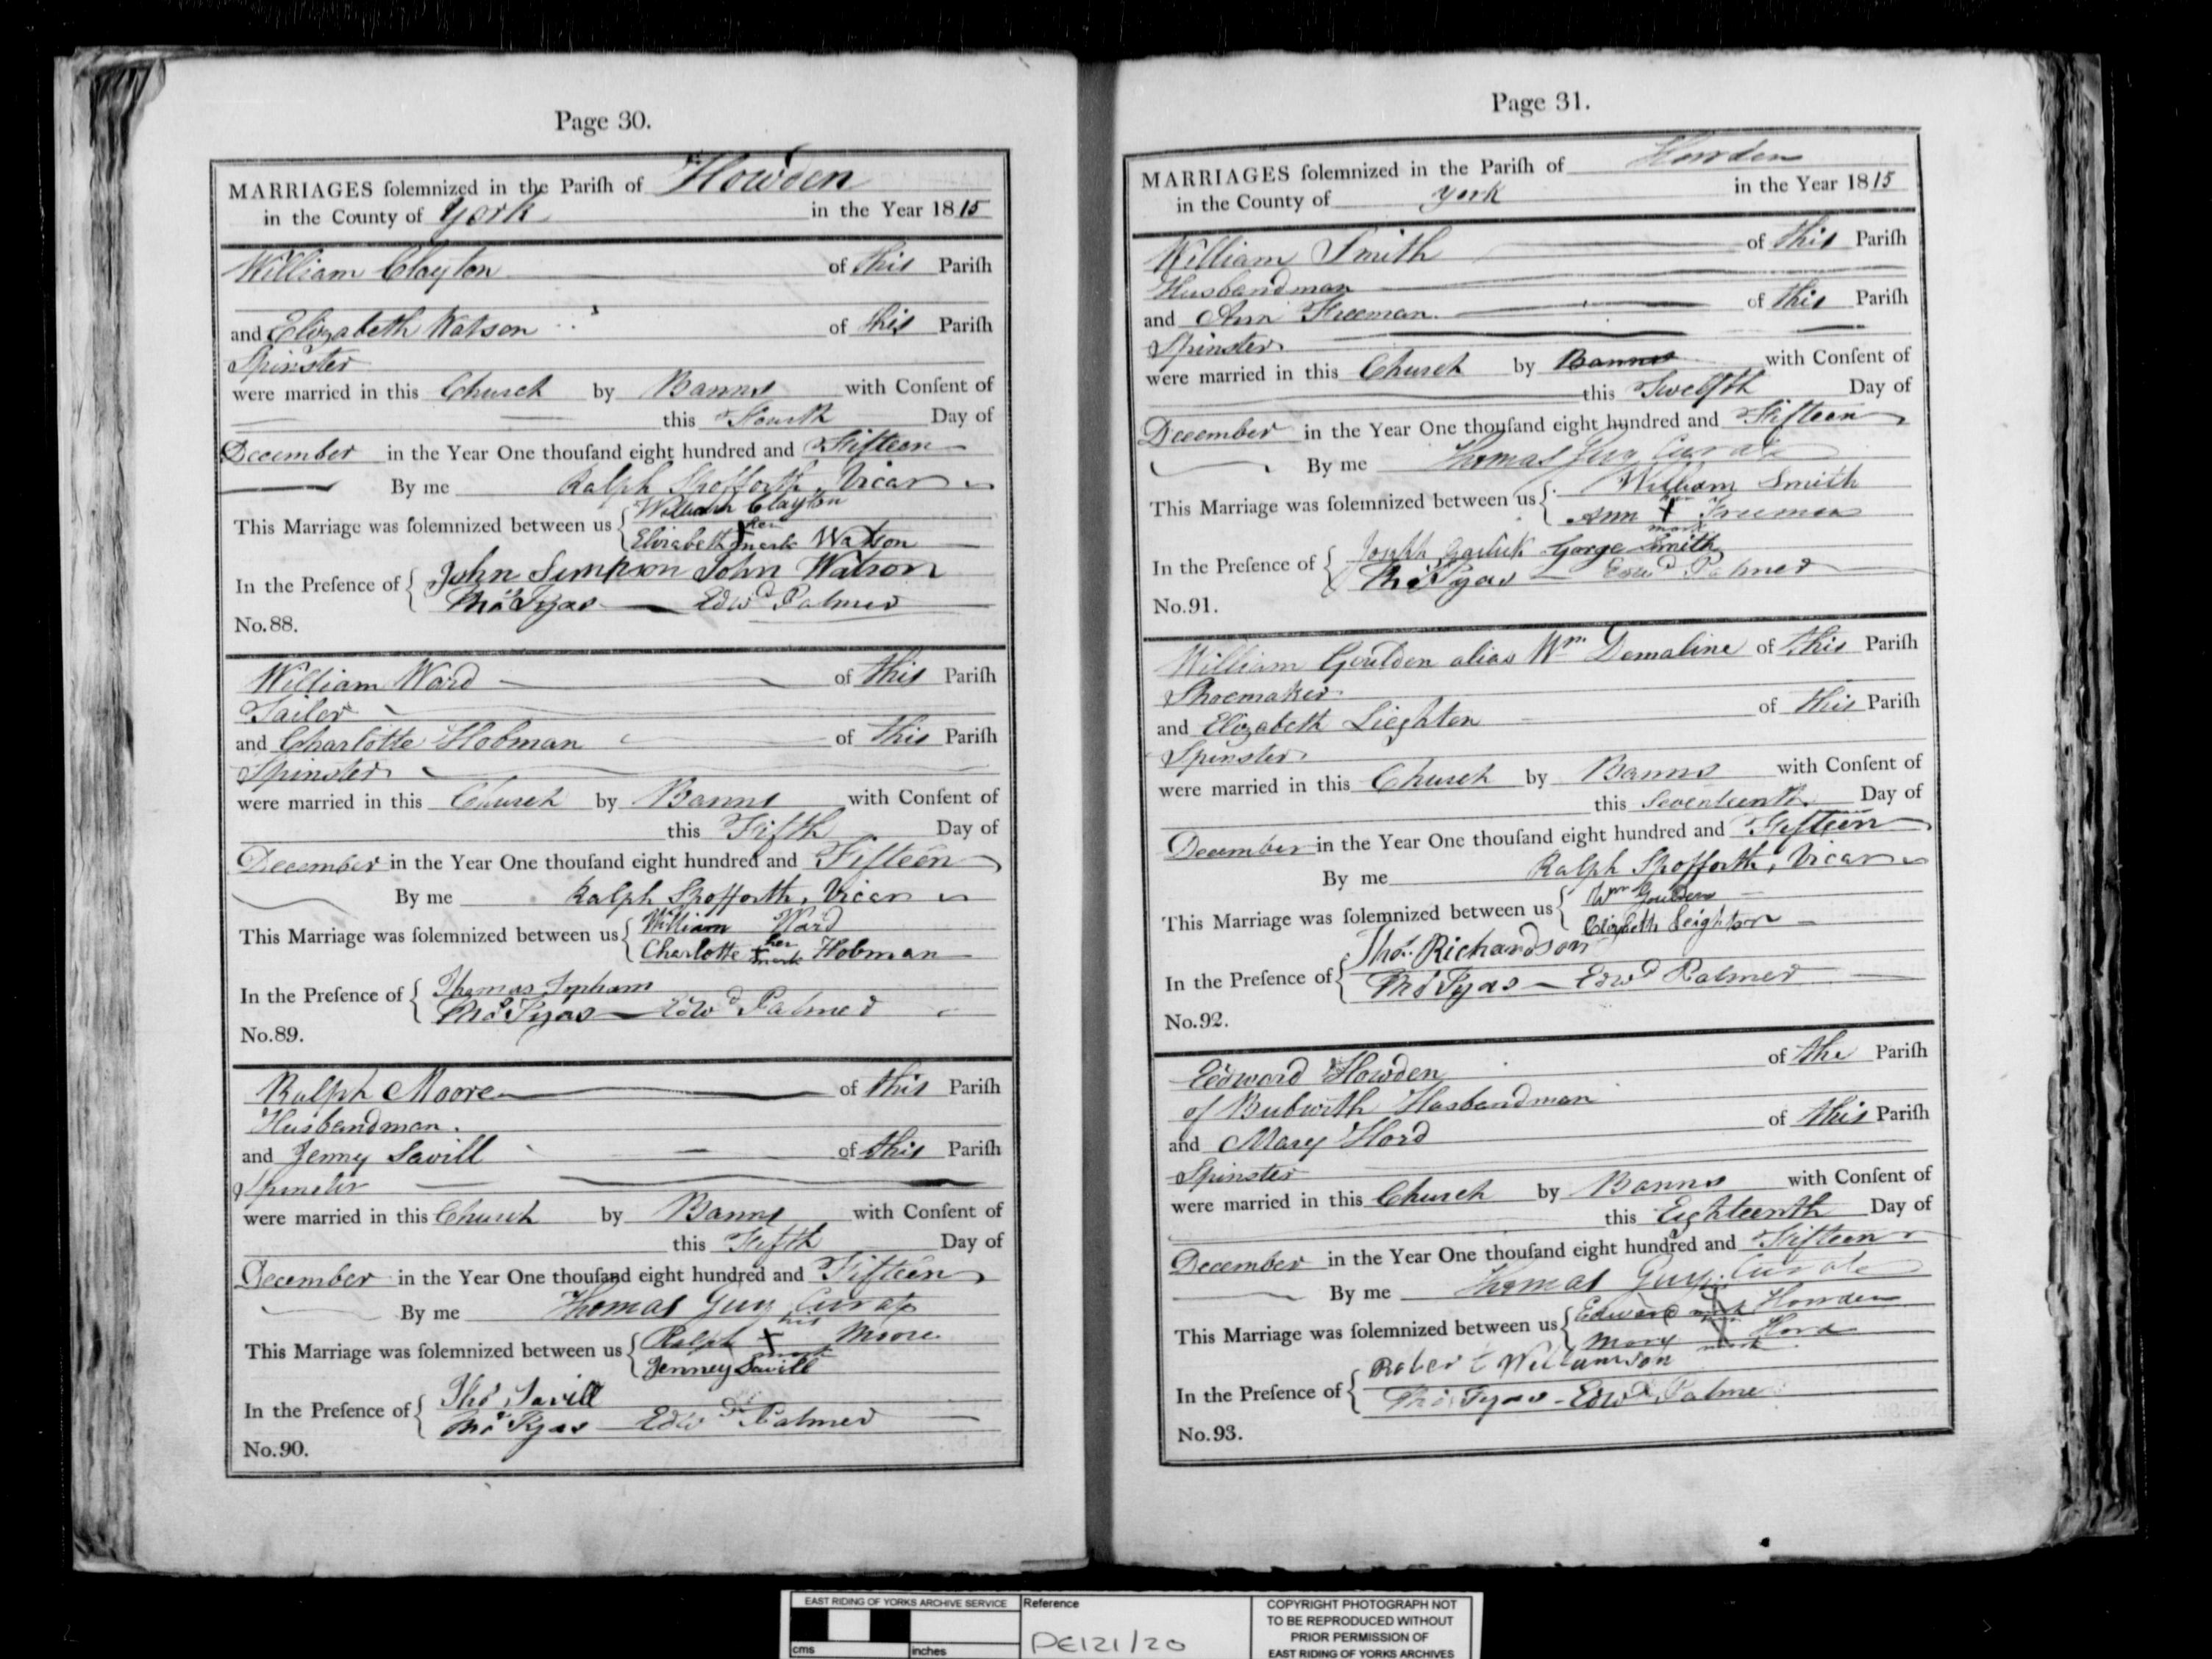 Page 30.
MARRIAGES solemnized in the Parish of Howden
in the County of York in the Year 1815
William Clayton of this Parish
and Elizabeth Watson of this Parish
Spinster
were married in this Church by Banns with Consent of
this Fourth Day of
December in the Year One thousand eight hundred and Fifteen
By me Ralph Spofforth, Vicar
William Clayton
This Marriage was solemnized between us
Elizabeth her mark Watson
John Simpson John Watson
In the Presence of
Thos Tyas Edwd Palmer
No. 88.
William Ward of this Parish
Tailor
and Charlotte Hobman of this Parish
Spinster
were married in this Church by Banns with Consent of
this Fifth Day of
December in the Year One thousand eight hundred and Fifteen
By me Ralph Spofforth, Vicar
William Ward
This Marriage was solemnized between us
Charlotte her mark Hobman
Thomas Topham
In the Presence of
Thos Tyas Edwd Palmer
No. 89.
Ralph Moore of this Parish
Husbandman.
and Jenny Savill of this Parish
Spinster
were married in this Church by Banns with Consent of
this Fifth Day of
December in the Year One thousand eight hundred and Fifteen
By me Thomas Guy Curate
Ralph his mark Moore
This Marriage was solemnized between us
Jenney Savill
Thos Savill
In the Presence of
Thos Tyas Edwd Palmer
No. 90.
Page 31.
MARRIAGES solemnized in the Parish of Howden
in the County of York in the Year 1815
William Smith of this Parish
Husbandman
and Ann Freeman of this Parish
Spinster
were married in this Church by Banns with Consent of
this Twelfth Day of
December in the Year One thousand eight hundred and Fifteen
By me Thomas Guy Curate
William Smith
This Marriage was solemnized between us
Ann her mark Freeman
Joseph Garlick Gorge Smith
In the Presence of
Thos Tyas Edwd Palmer
No. 91.
William Goulden alias Wm Demaline of this Parish
Shoemaker
and Elizabeth Lieghton of this Parish
Spinster
were married in this Church by Banns with Consent of
this Seventeenth Day of
December in the Year One thousand eight hundred and Fifteen
By me Ralph Spofforth, Vicar
Wm Goulden
This Marriage was solemnized between us
Elizabeth Leighton
Thos. Richardson
In the Presence of
Thos Tyas Edwd Palmer
No. 92.
Edward Howden of the Parish
of Bubwith Husbandman
and Mary Hord of this Parish
Spinster
were married in this Church by Banns with Consent of
this Eighteenth Day of
December in the Year One thousand eight hundred and Fifteen
By me Thomas Guy Curate
Edward mark Howden
This Marriage was solemnized between us
Mary mark Hord
Robert Williamson
In the Presence of
Thos Tyas - Edwd Palmer
No. 93.
EAST RIDING OF YORKS ARCHIVE SERVICE
cms inches
Reference
PE121/20
COPYRIGHT PHOTOGRAPH NOT
TO BE REPRODUCED WITHOUT
PRIOR PERMISSION OF
EAST RIDING OF YORKS ARCHIVES